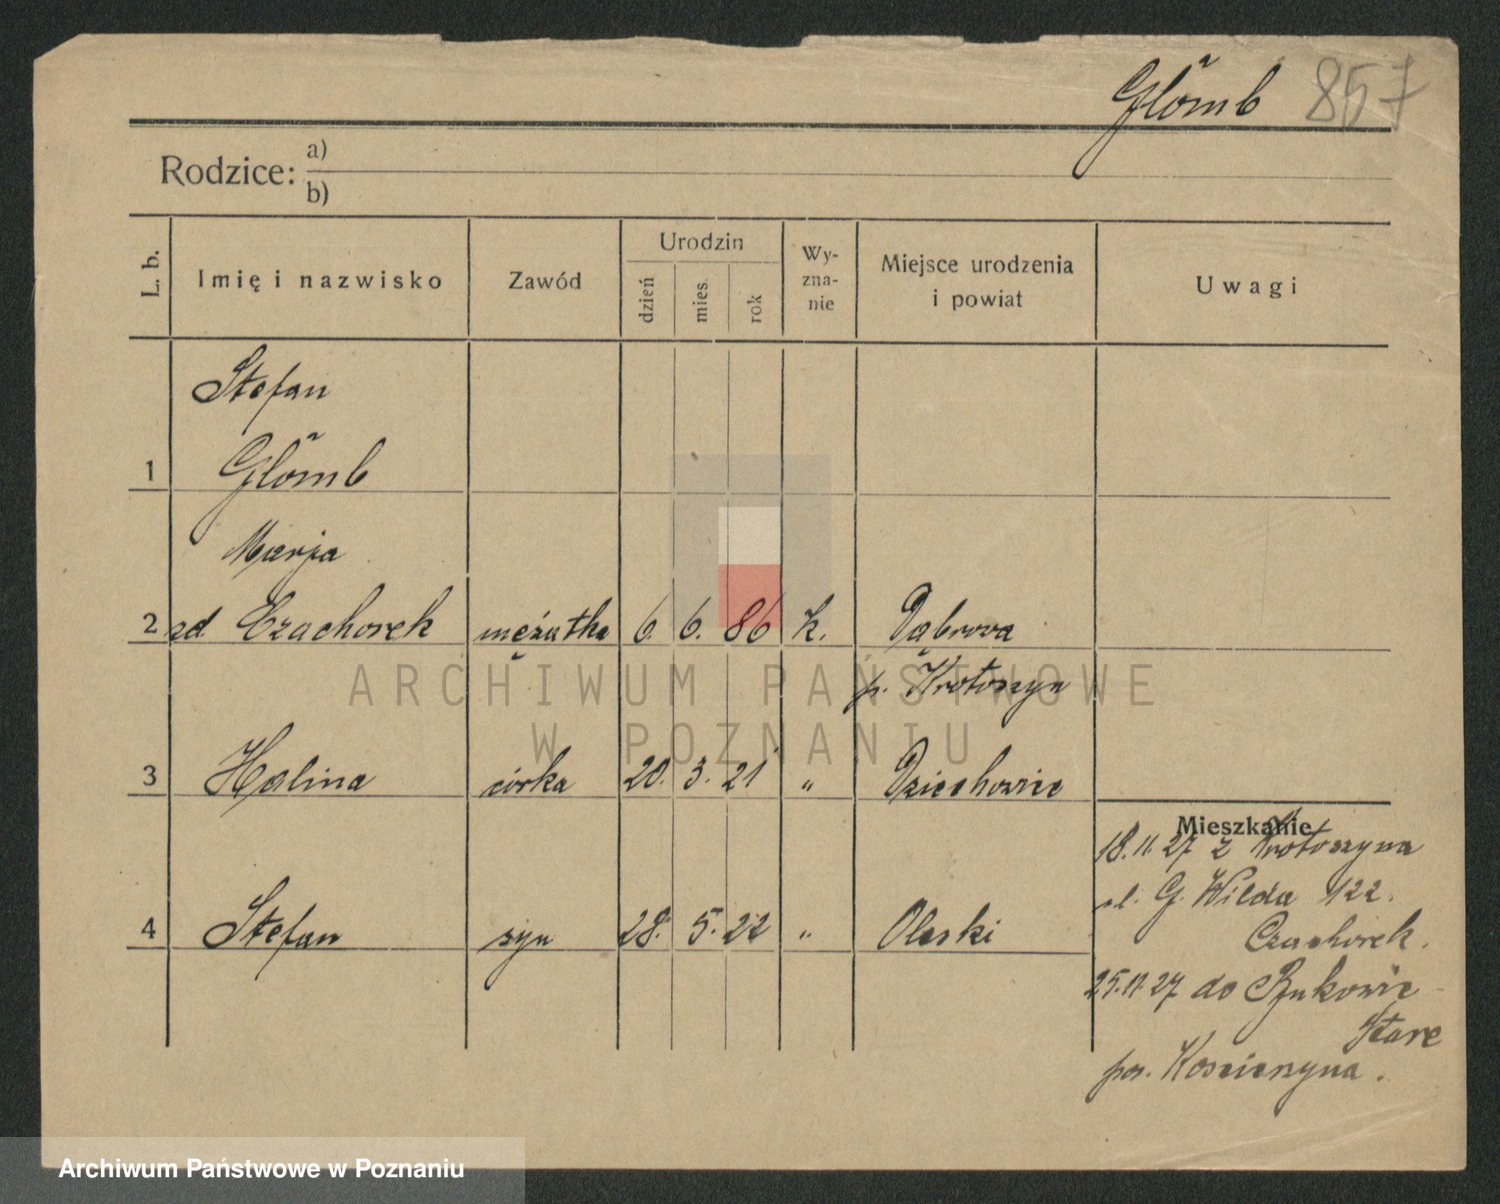 Glömb 857
Rodzice: a)
b)
L. b. Imię i nazwisko Zawód Urodzin dzień mies. rok Wy-zna-nie Miejsce urodzenia i powiat Uwagi
Stefan
1 Glömb
Marja
2 zd. Czachorek mężatka 6. 6. 86 k. Dąbrowa
p. Krotoszyn
3 Halina córka 20. 3. 21 " Dziechowic
Mieszkanie
18.11.27 z Krotoszyna
ul. G. Wilda 122.
4 Stefan syn 28. 5. 22 " Olaski
Czachorek.
25.11.27 do Bukowic
Stare
pow. Koscierzyna.
ARCHIWUM PAŃSTWOWE
W POZNANIU
Archiwum Państwowe w Poznaniu